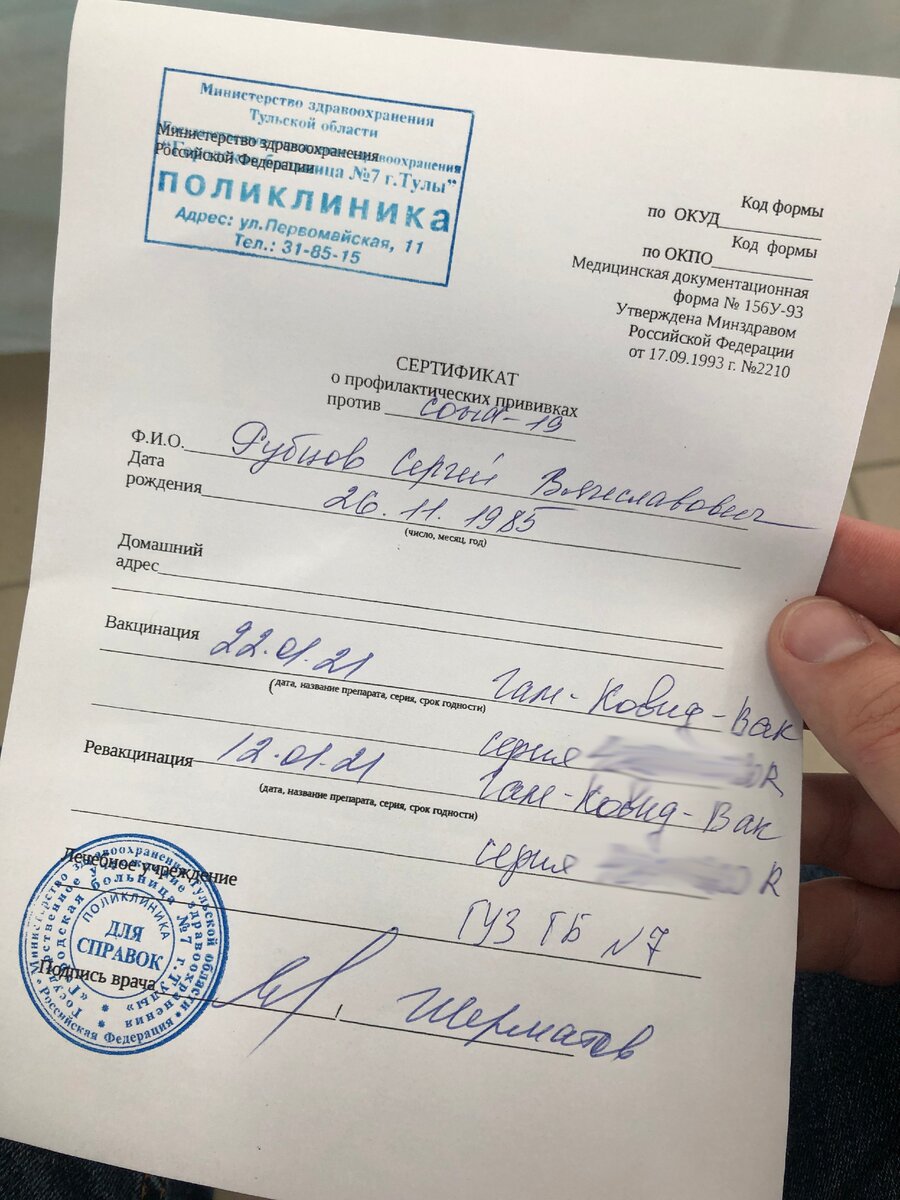 Министерство здравоохранения
Тульской области
Министерство здравоохранения
Российской Федерации
№7 г.Тулы”
ПОЛИКЛИНИКА
Адрес: ул.Первомайская, 11
Тел.: 31-85-15
Код формы
по ОКУД
Код формы
по ОКПО
Медицинская документационная
форма № 156У-93
Утверждена Минздравом
Российской Федерации
от 17.09.1993 г. №2210
СЕРТИФИКАТ
о профилактических прививках
против covid-19
Ф.И.О. Рубцов Сергей Вячеславович
Дата
рождения 26.11.1985
(число, месяц, год)
Домашний
адрес
Вакцинация 22.01.21 Гам-Ковид-Вак
(дата, название препарата, серия, срок годности)
серия
Ревакцинация 12.01.21 Гам-Ковид-Вак
(дата, название препарата, серия, срок годности)
серия
Лечебное учреждение
ГУЗ ГБ №7
Подпись врача Шерматов
Министерство здравоохранения Тульской области
Российская Федерация
Государственное учреждение здравоохранения
«Городская больница № 7 г.Тулы»
ПОЛИКЛИНИКА
ДЛЯ
СПРАВОК